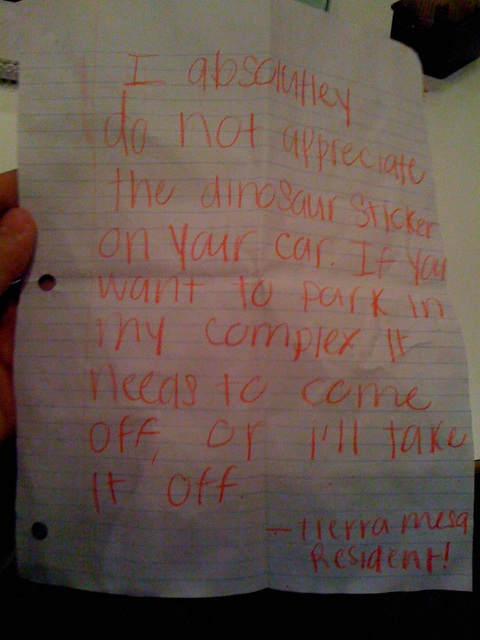 I absolutley
do not appreciate
the dinosaur sticker
on your car. If you
want to park in
my complex it
needs to come
off, or I'll take
it off.
- Tierra mesa
Resident!